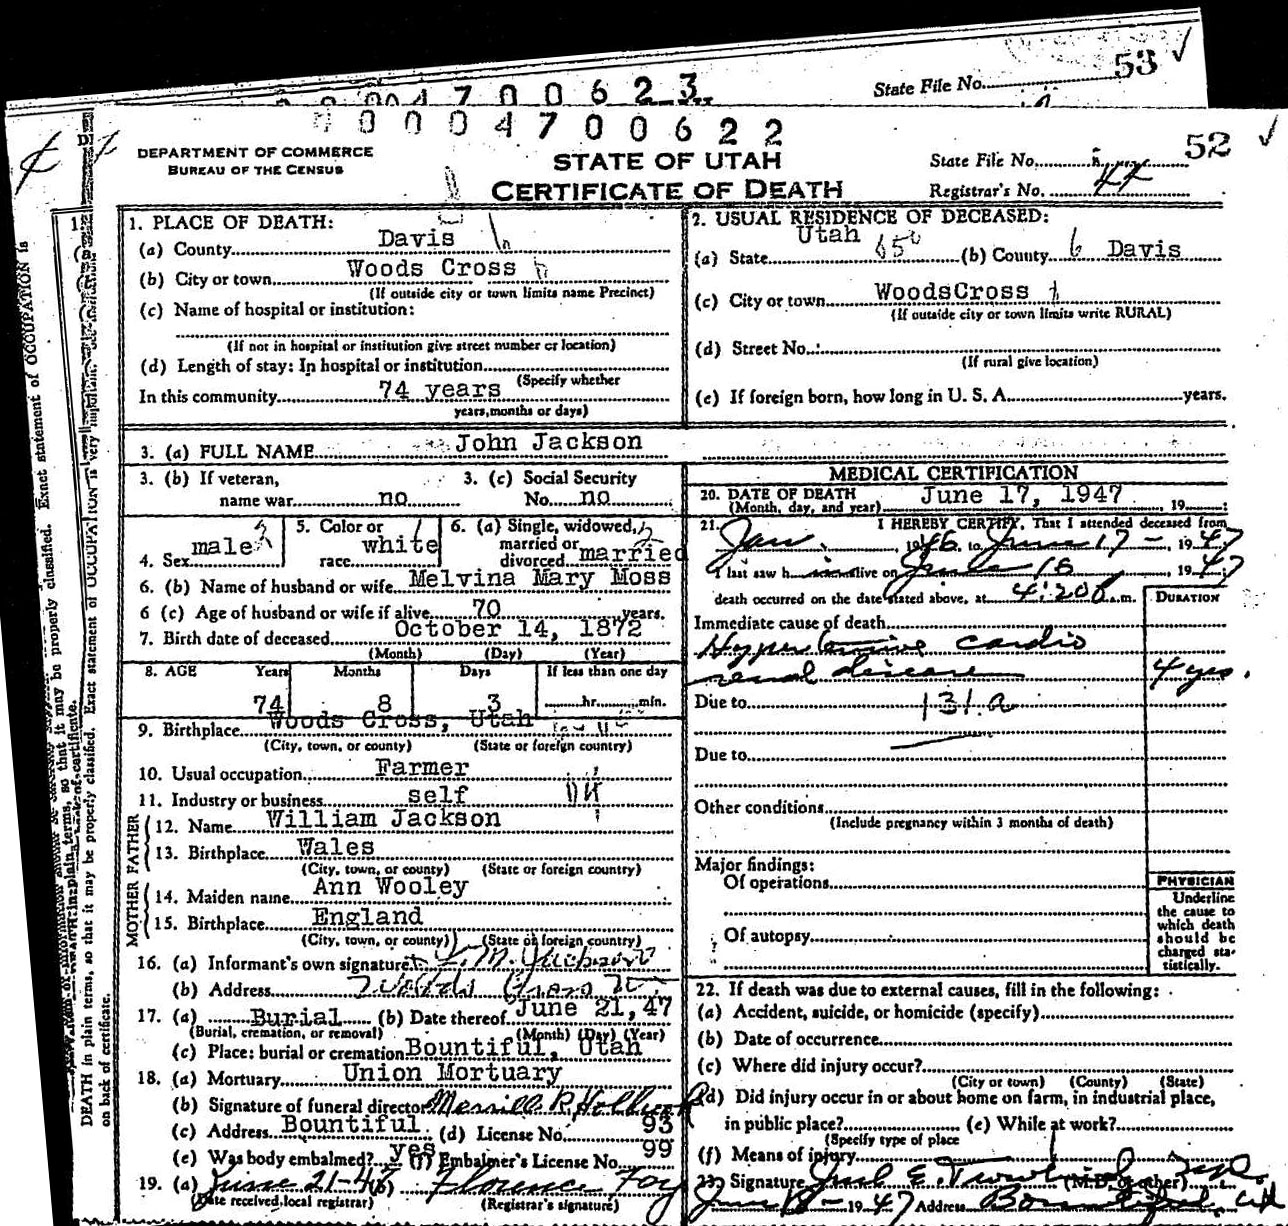 53
State File No.
4700623
00004700622
52
DEPARTMENT OF COMMERCE
BUREAU OF THE CENSUS
STATE OF UTAH
CERTIFICATE OF DEATH
State File No.
Registrar's No.
1. PLACE OF DEATH:
(a) County Davis
(b) City or town Woods Cross
(If outside city or town limits name Precinct)
(c) Name of hospital or institution:
(If not in hospital or institution give street number or location)
(d) Length of stay: In hospital or institution
(Specify whether
In this community 74 years
years, months or days)
2. USUAL RESIDENCE OF DECEASED:
(a) State Utah (b) County 6 Davis
(c) City or town WoodsCross
(If outside city or town limits write RURAL)
(d) Street No.
(If rural give location)
(e) If foreign born, how long in U. S. A. years.
3. (a) FULL NAME John Jackson
3. (b) If veteran, name war no
3. (c) Social Security No. no
4. Sex male
5. Color or race white
6. (a) Single, widowed, married or divorced married
6. (b) Name of husband or wife Melvina Mary Moss
6 (c) Age of husband or wife if alive 70 years.
7. Birth date of deceased October 14, 1872
(Month) (Day) (Year)
8. AGE Years Months Days If less than one day
74 8 3 hr. min.
9. Birthplace Woods Cross, Utah
(City, town, or county) (State or foreign country)
10. Usual occupation Farmer
11. Industry or business self
FATHER
12. Name William Jackson
13. Birthplace Wales
(City, town, or county) (State or foreign country)
MOTHER
14. Maiden name Ann Wooley
15. Birthplace England
(City, town, or county) (State or foreign country)
16. (a) Informant's own signature L. M. Jackson
(b) Address Woods Cross Ut
17. (a) Burial (b) Date thereof June 21, 47
(Burial, cremation, or removal) (Month) (Day) (Year)
(c) Place: burial or cremation Bountiful, Utah
18. (a) Mortuary Union Mortuary
(b) Signature of funeral director Merrill R. Holbrook
(c) Address Bountiful (d) License No. 93
(e) Was body embalmed? yes (f) Embalmer's License No. 99
19. (a) June 21-47 (b) Florence Foy
(Date received local registrar) (Registrar's signature)
MEDICAL CERTIFICATION
20. DATE OF DEATH June 17, 1947
(Month, day, and year) 19
21. I HEREBY CERTIFY, That I attended deceased from
Jan. 1946 to June 17 - 1947
I last saw him alive on June 16 1947
death occurred on the date stated above, at 4:20 p.m.
DURATION
Immediate cause of death
Hypertensive cardio
renal disease 4 yrs.
Due to 131.a
Due to
Other conditions
(Include pregnancy within 3 months of death)
Major findings:
Of operations
Of autopsy
PHYSICIAN
Underline
the cause to
which death
should be
charged sta-
tistically.
22. If death was due to external causes, fill in the following:
(a) Accident, suicide, or homicide (specify)
(b) Date of occurrence
(c) Where did injury occur?
(City or town) (County) (State)
(d) Did injury occur in or about home on farm, in industrial place,
in public place? (e) While at work?
(Specify type of place
(f) Means of injury
23. Signature (M.D. or other)
1947 Address Bountiful, Ut
DEATH in plain terms, so that it may be properly classified. Exact statement of OCCUPATION is very
on back of certificate.